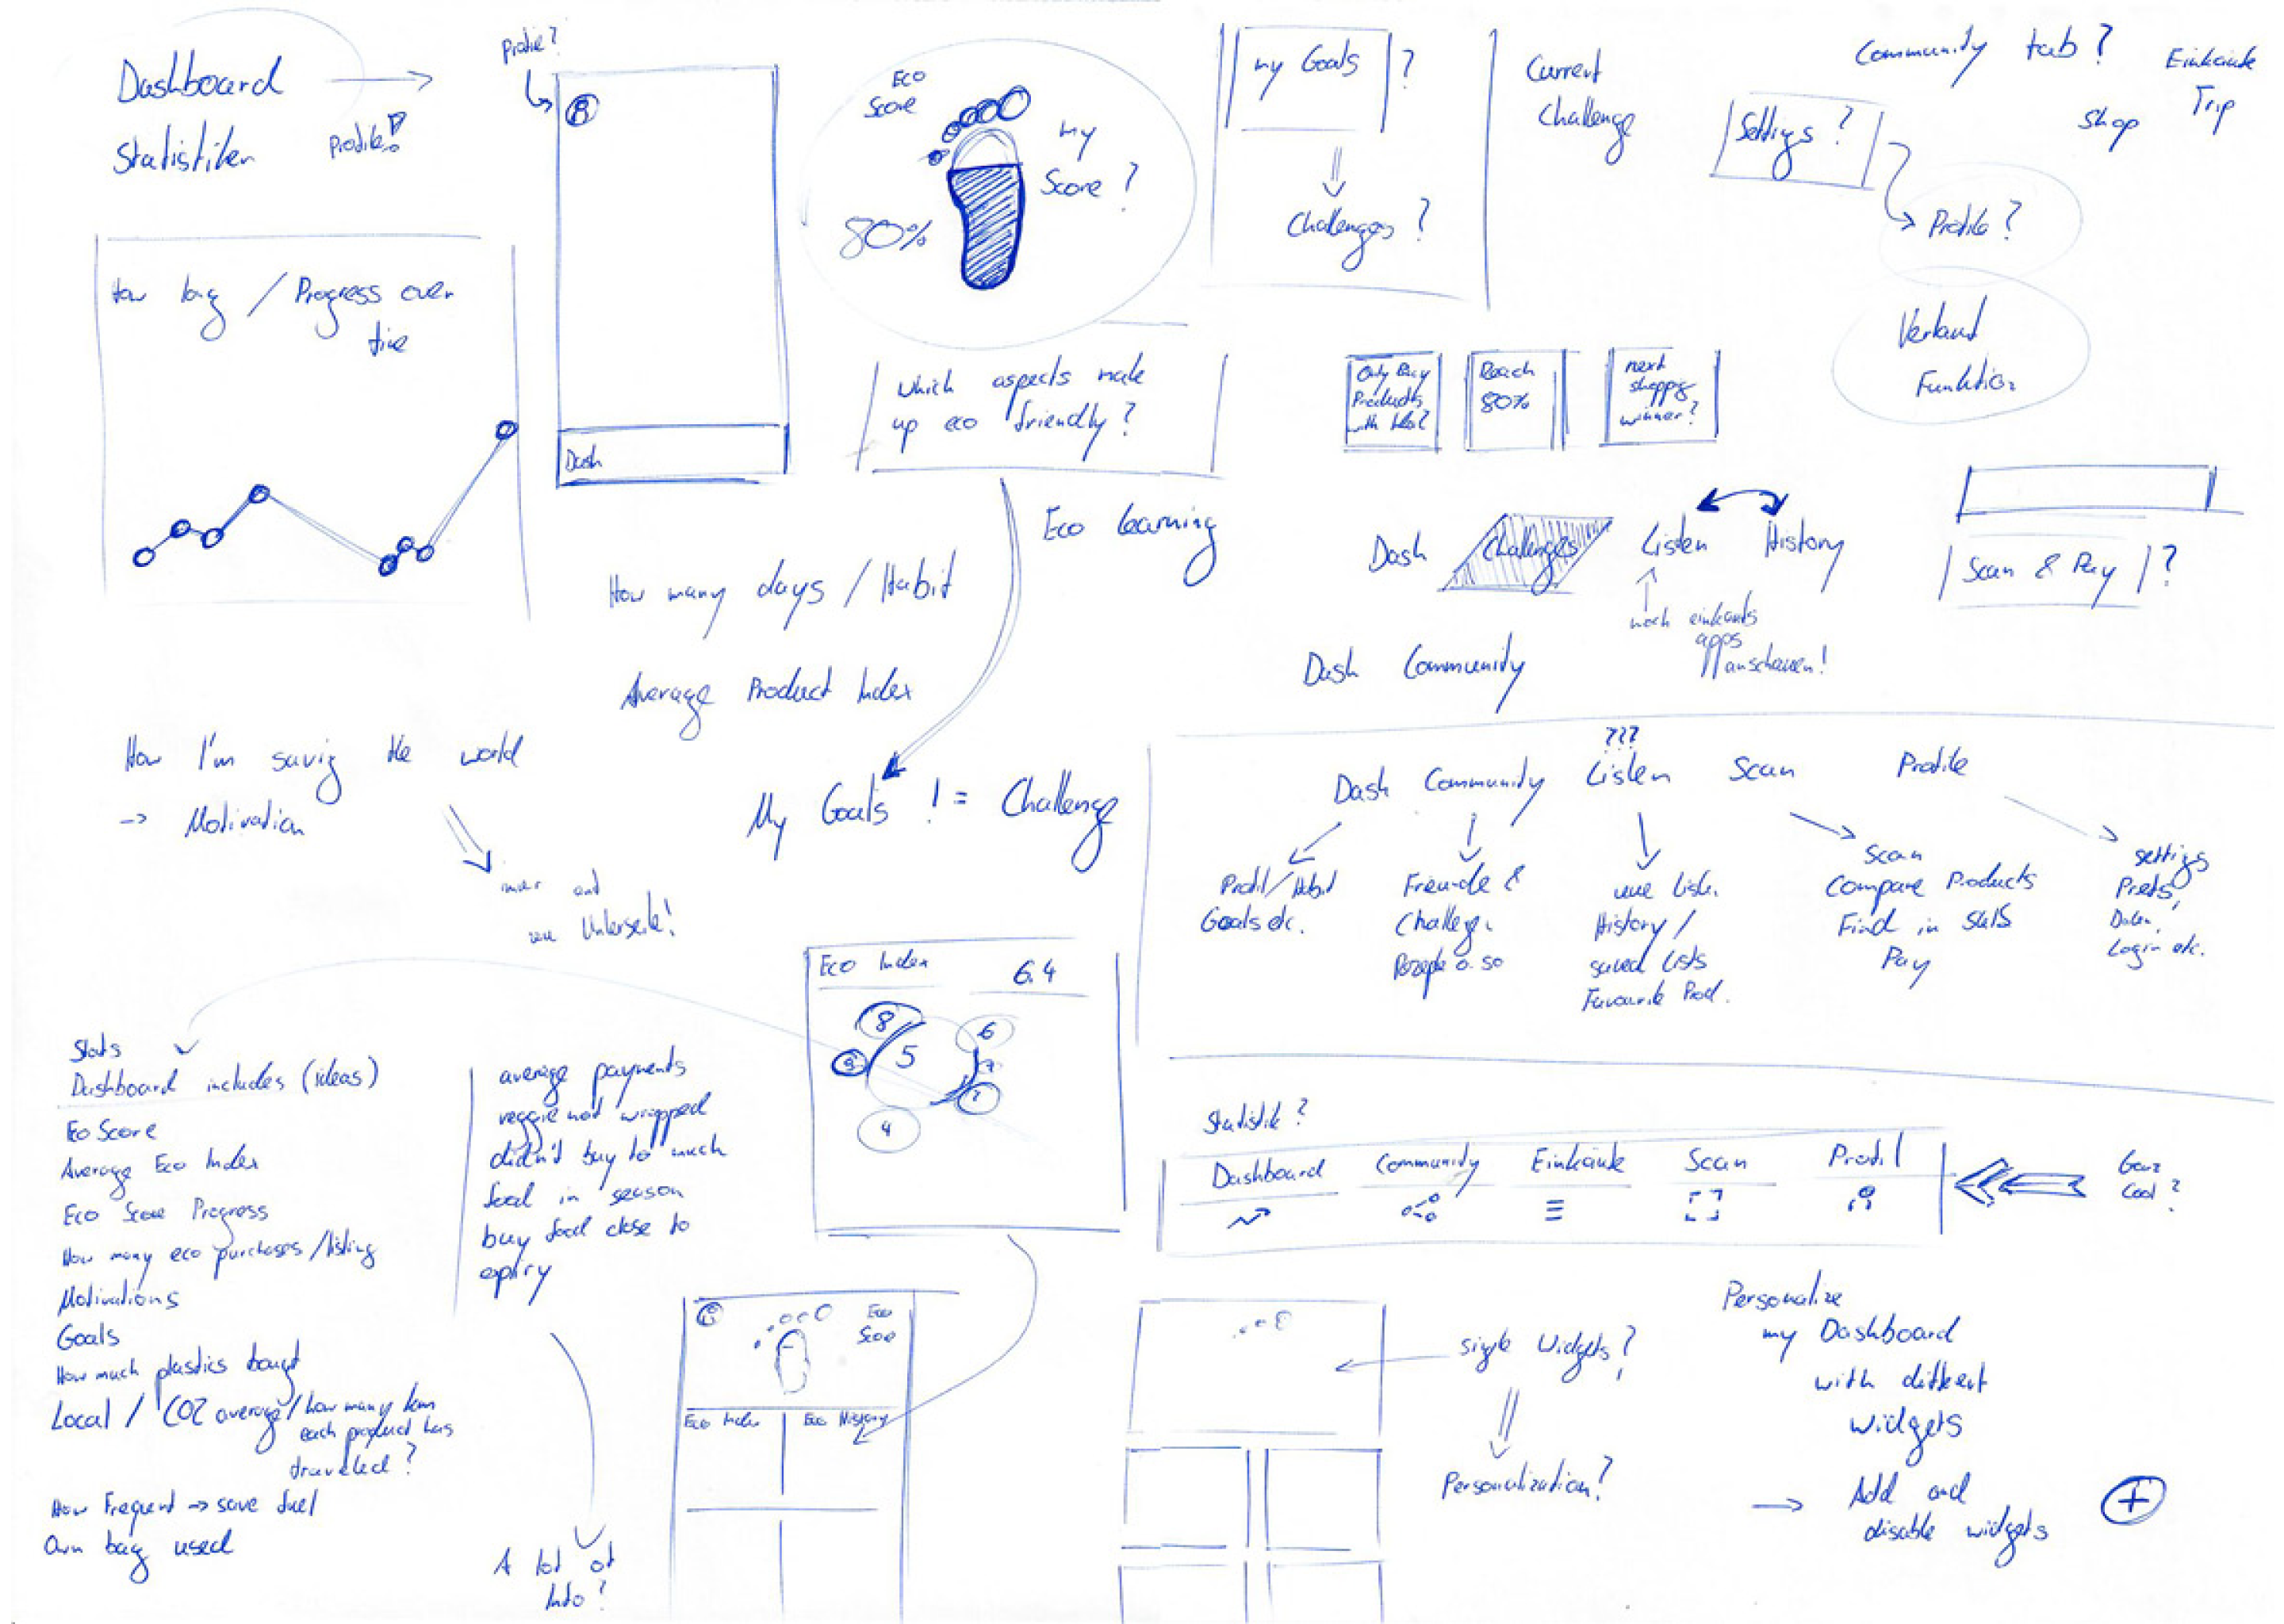 Dashboard
Statistiken
Profile!
Profile?
Dash
Eco
Score
my
Score?
80%
my Goals ?
Challenges ?
Current
Challenge
Community tab?
Einkäufe
Trip
Shop
Settigs ?
Profile?
Verlauf
Funktion
How long / Progress over
time
which aspects make
up eco friendly?
Only Buy
Products
with
Reach
80%
next
shoppig
winner?
Eco Learning
Dash Challenges Listen History
noch einkaufs
apps
anschauen!
Scan & Pay ?
Dash Community
How many days / Habit
Average Product Index
How I'm savig the world
-> Motivation
My Goals != Challenge
???
Dash Community Listen Scan Profile
Profil / Habit
Goals etc.
Freunde &
Challenge
Rezepte o. so
neue Liste
History /
saved Lists
Favourite Prod.
Scan
Compare Products
Find in
Pay
settigs
Prefs,
Daten,
Login etc.
Eco Index 6.4
8
6
9
5
7
4
Stats
Dashboard includes (ideas)
Eo Score
Average Eco Index
Eco Score Progress
How many eco purchases / listing
Motivations
Goals
How much plastics bougt
Local / CO2 average / how many km
each product has
traveled?
How Frequent -> save fuel
Own bag used
average payments
veggie not wrapped
didn't buy to much
food in season
buy food close to
expiry
A lot of
Info?
Statistik?
Dashboard Community Einkäufe Scan Profil
Ganz
Cool?
Eco
Score
Eco Index Eco History
sigle Widgets?
Personalization?
Personalize
my Dashboard
with diffrent
widgets
-> Add and
disable widgets
+